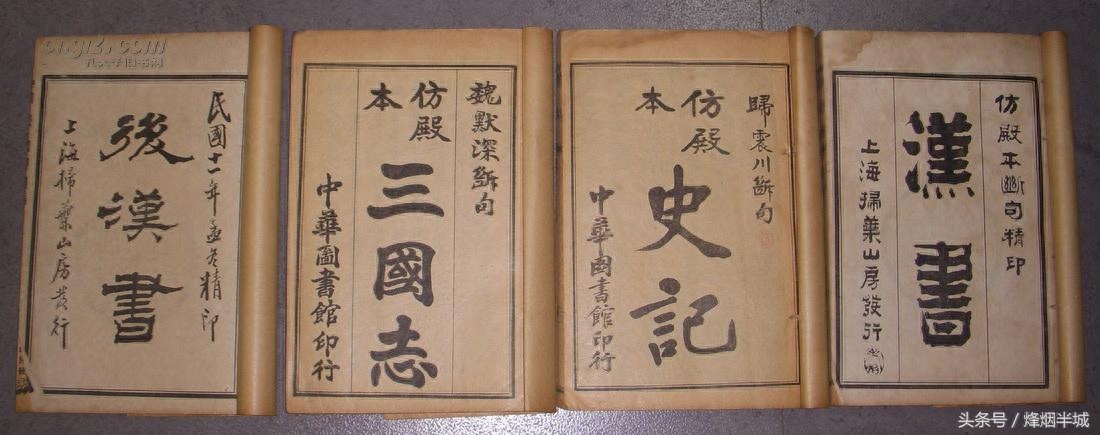 民國十一年孟冬精印
後漢書
上海掃葉山房發行
魏默深斷句
仿殿
本
三國志
中華圖書館印行
歸震川斷句
仿殿
本
史記
中華圖書館印行
仿殿本斷句精印
漢書
上海掃葉山房發行
孔夫子旧书网
头条号 / 烽烟半城